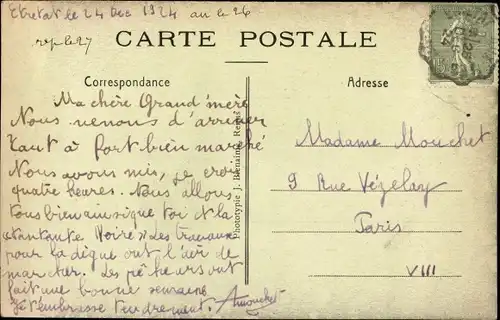 Etretat le 24 Dec 1924 au le 26
rep le 27
CARTE POSTALE
Correspondance
Adresse
Ma chère Grand'mère
Nous venons d'arriver
tout à fort bien marché
Nous avons mis, je crois
quatre heures. Nous allons
tous bien ainsi que toi et la
tante Noire. Les travaux
pour la digue ont l'air de
marcher. Les pêcheurs ont
fait une bonne semaine
Je t'embrasse tendrement.
Phototypie J. Bienaimé, Reims
Madame Mouchet
9 Rue Vézelay
Paris
VIII